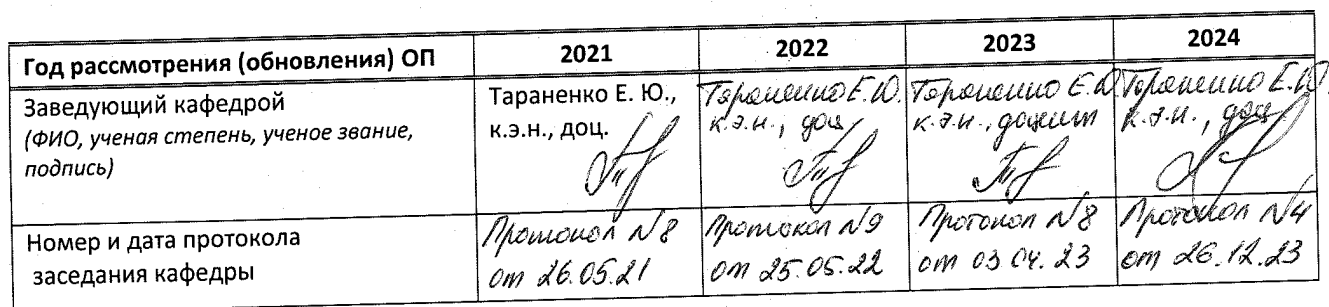 Год рассмотрения (обновления) ОП 2021 2022 2023 2024
Заведующий кафедрой
(ФИО, ученая степень, ученое звание,
подпись)
Тараненко Е. Ю.,
к.э.н., доц.
Тараненко Е.Ю.
к.э.н., доц
Тараненко Е.Ю
к.э.н., доцент
Тараненко Е.Ю.
к.э.н., доц
Номер и дата протокола
заседания кафедры
Протокол №8
от 26.05.21
Протокол №9
от 25.05.22
Протокол №8
от 03.04.23
Протокол №4
от 26.12.23